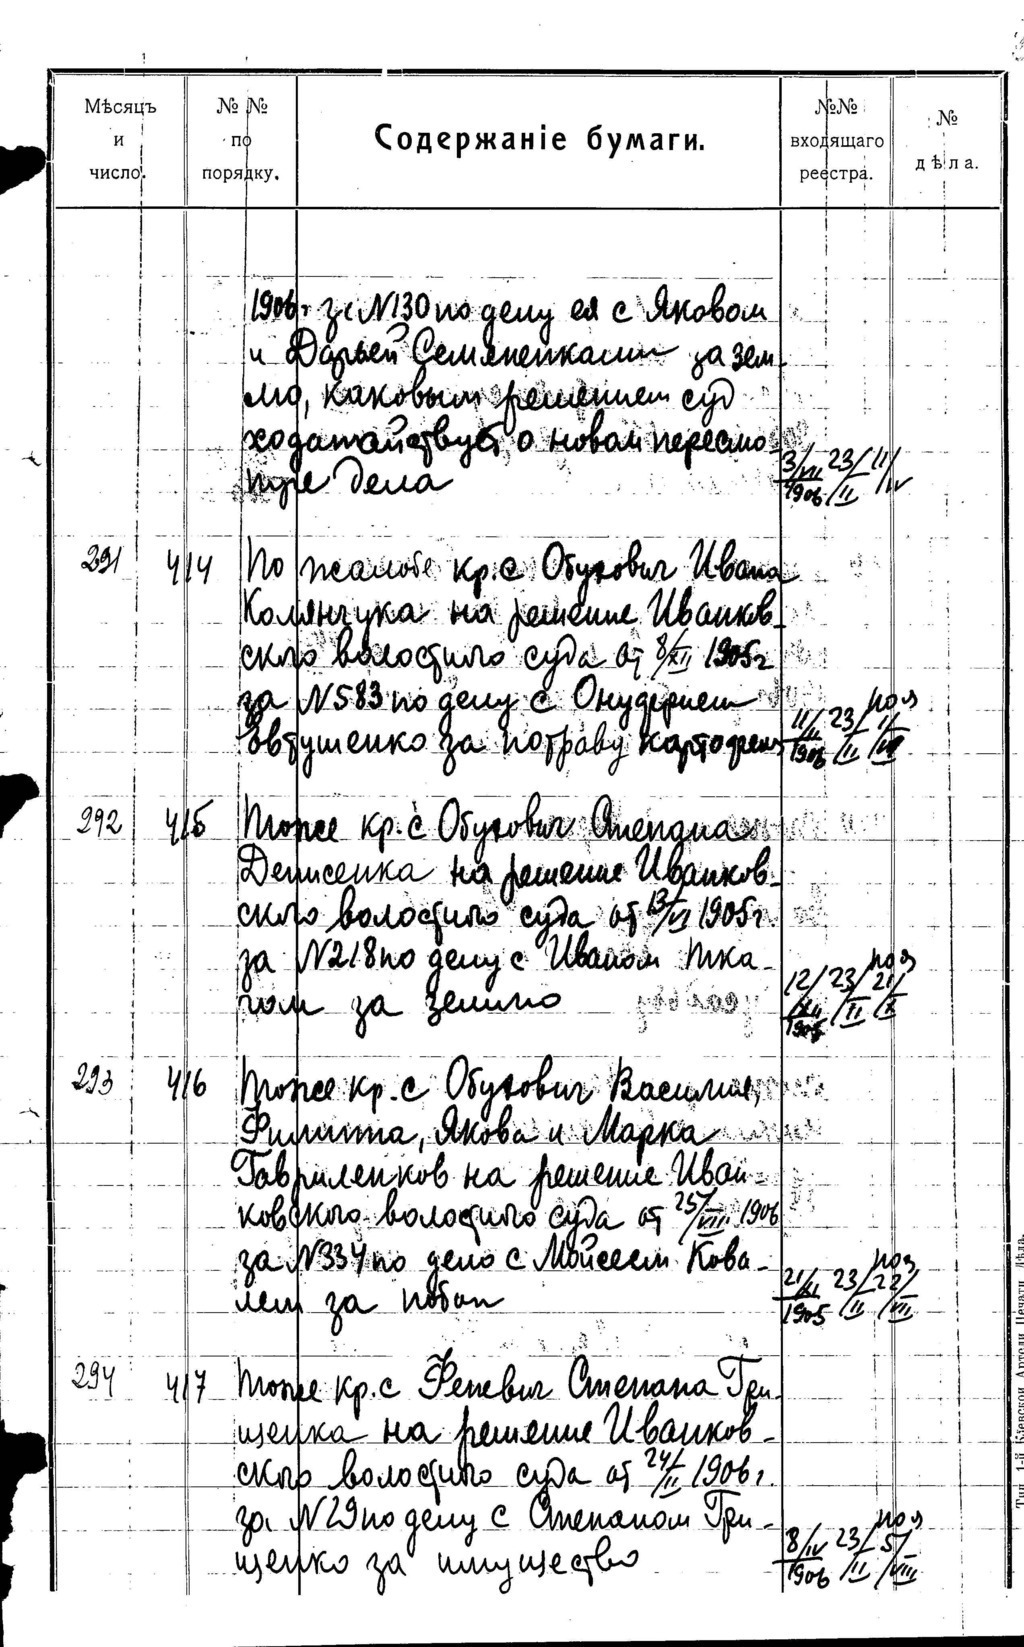 Мѣсяцъ и число.
№№ по порядку.
Содержаніе бумаги.
№№ входящаго реестра.
№ дѣла.
1906 г за №130 по делу ея с Яковом
и Дарьей Семененками за зем
лю, каковым решением суд
ходатайствует о новом пересмо-
тре дела
3/VII 1906 23/II 11/IV
291 414 По жалобе кр. с Обухович Ивана
Колянчука на решение Иванков-
ского волостного суда от 8/XII 1905 г
за №583 по делу с Онуфрием
Евтушенко за потраву картофеля
11/II 1906 23/II
292 415 Тоже кр. с Обухович Степана
Денисенка на решение Иванков-
ского волостного суда от 13/VI 1905 г.
за №218 по делу с Иваном Тка-
чом за землю
12/XII 1905 23/II 21/X
293 416 Тоже кр. с Обухович Василия,
Филиппа, Якова и Марка
Гавриленков на решение Иван-
ковского волостного суда от 25/VIII 1906
за №334 по делу с Мойсеем Кова-
лем за побои
21/XI 1905 23/II 22/VII
294 417 Тоже кр. с Феневич Степана Гри-
щенка на решение Иванков-
ского волостного суда от 24/II 1906 г.
за №29 по делу с Степаном Гри-
щенко за имущество
8/IV 1906 23/II 5/VIII
Тип. 1-й Кіевской Артели Печатн. Дѣла.